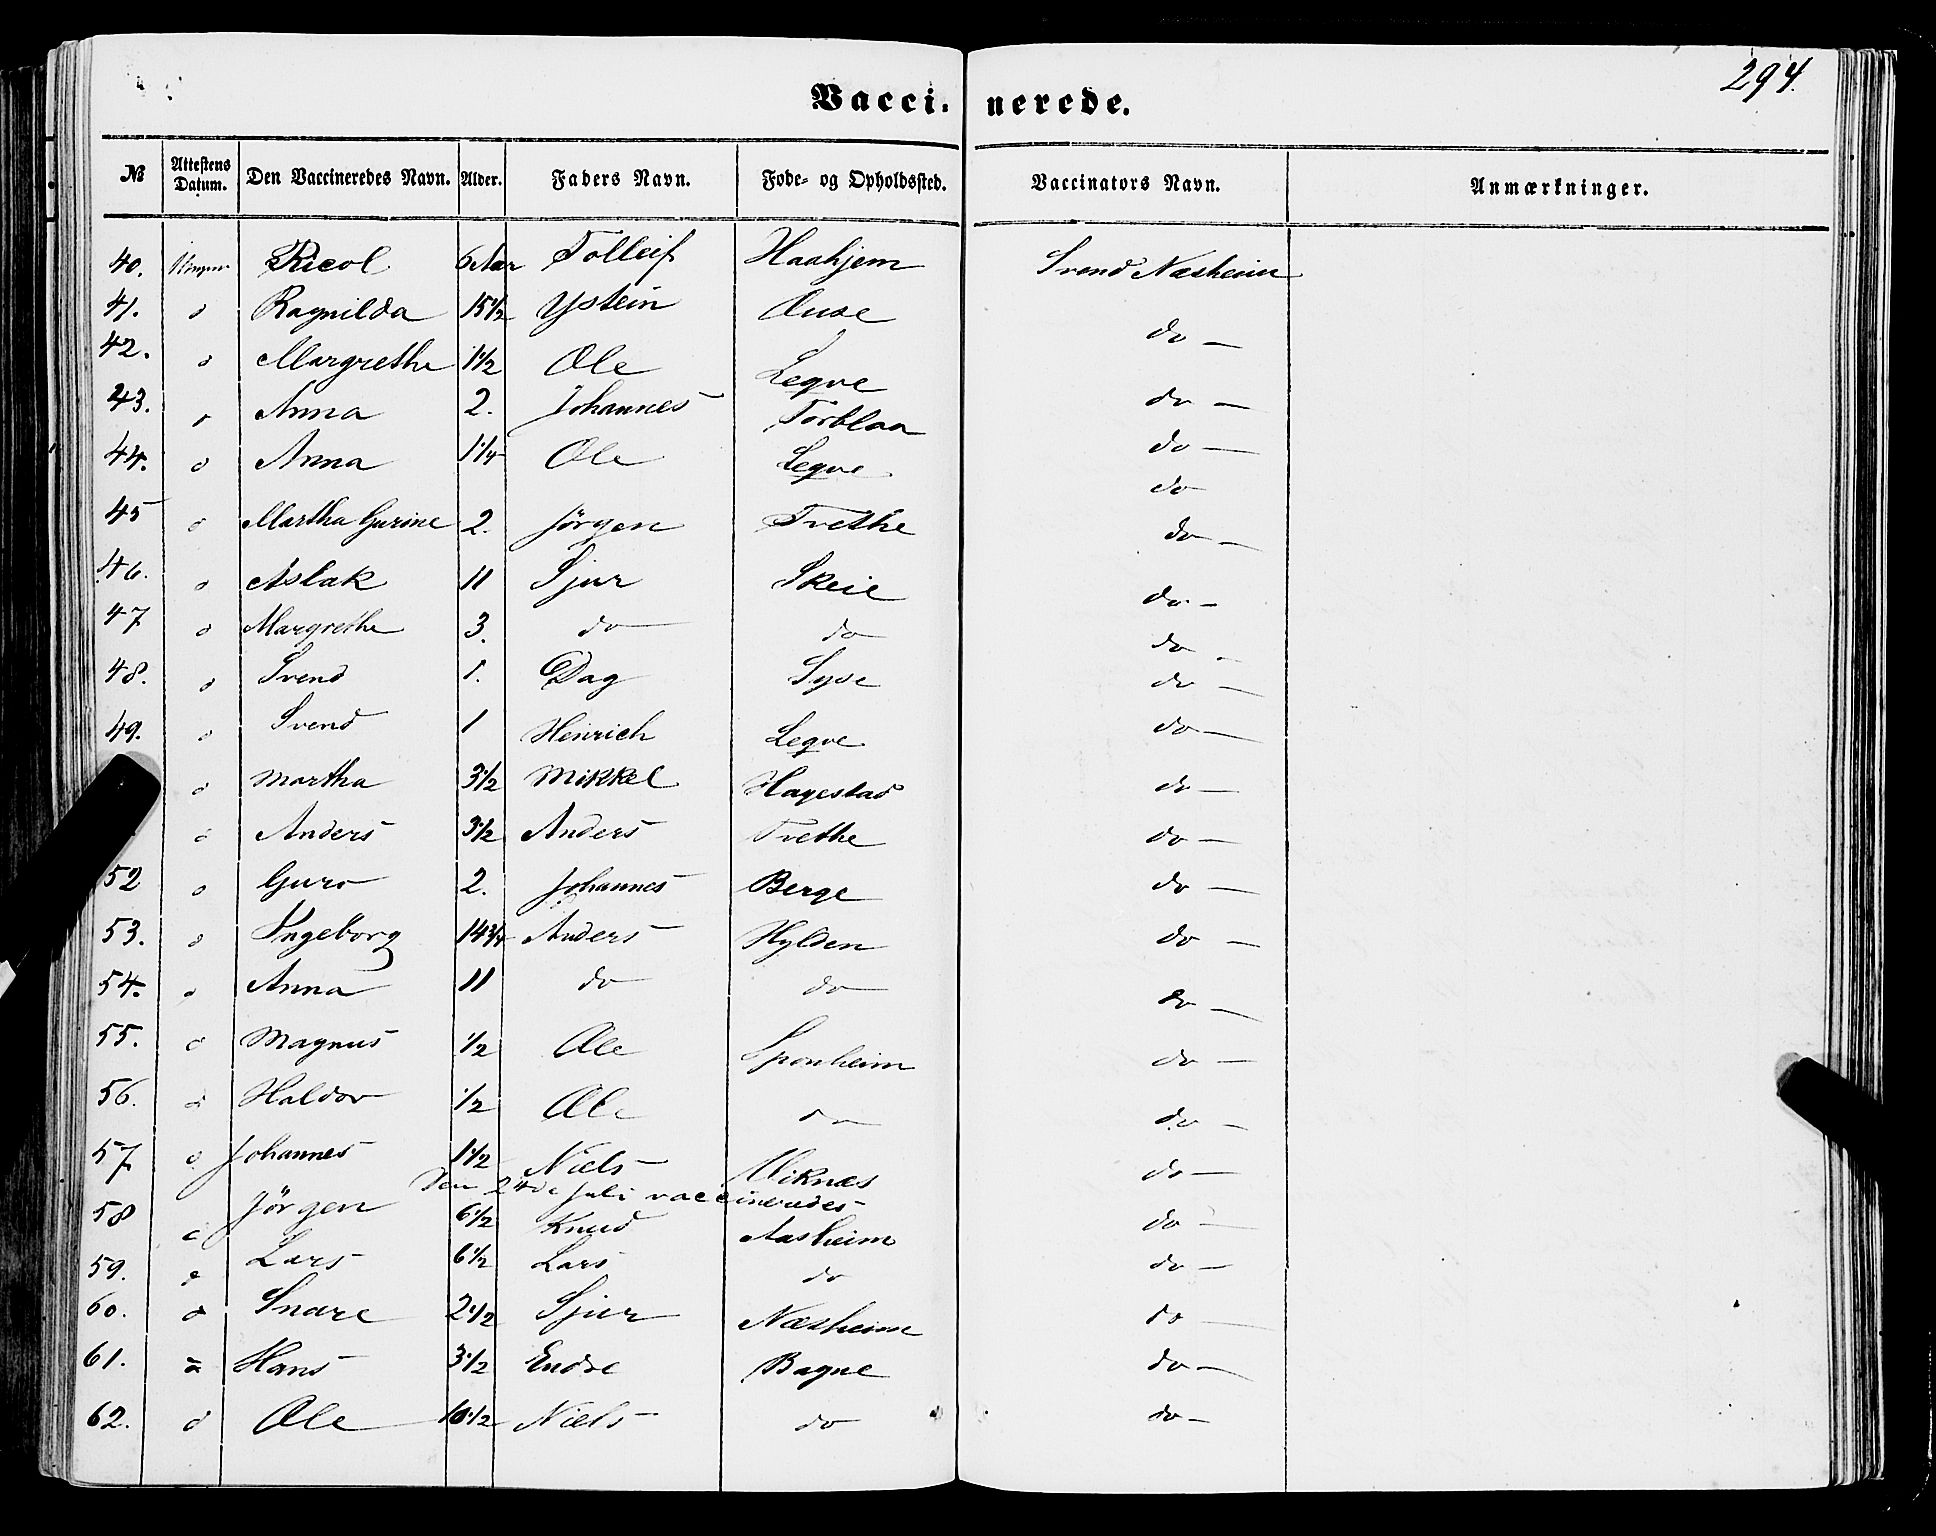 294.
Vaccinerede.
No Attestens Datum. Den Vaccineredes Navn. Alder. Faders Navn. Føde- og Opholdssted. Vaccinators Navn. Anmærkninger.
40. Ricol 6 Aar Tolleif Haahjem Svend Næsheim
41. d Ragnilda 15 1/2 Ystein Ouse do —
42. d Margrethe 1 1/2 Ole Leqve do —
43. d Anna 2. Johannes Torblaa do —
44. d Anna 1 1/4 Ole Leqve do
45 d Martha Gurine 2. Jörgen Tvethe do —
46. d Aslak 11 Sjur Skeie do —
47 d Margrethe 3. do do do —
48. d Svend 1. Dag Syse do —
49. d Svend 1 Henrich Leqve do —
d Martha 3 1/2 Mikkel Hagestad do —
d Anders 3 1/2 Anders Tvethe do —
52 d Guro 2. Johannes Berge do —
53. d Ingeborg 14 3/4 Anders Hylden do —
54. d Anna 11 do do do —
55. d Magnus 1/2 Ole Sponheim do —
56. d Haldor 1/2 Ole do do —
57 d Johannes 1 1/2 Niels Viknæs do —
Den 24de Juli vaccineredes
58 d Jörgen 6 1/2 Knud Aasheim do —
59. d Lars 6 1/2 Lars do do —
60. d Snare 2 1/2 Sjur Næsheim do —
61. d Hans 3 1/2 Endre Bagne do —
62. d Ole 10 1/2 Niels do do —